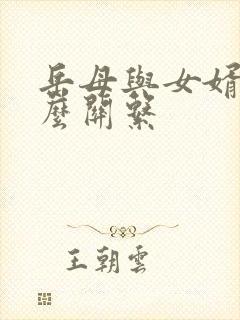 岳母與女婿
麼關繫
王朝雲